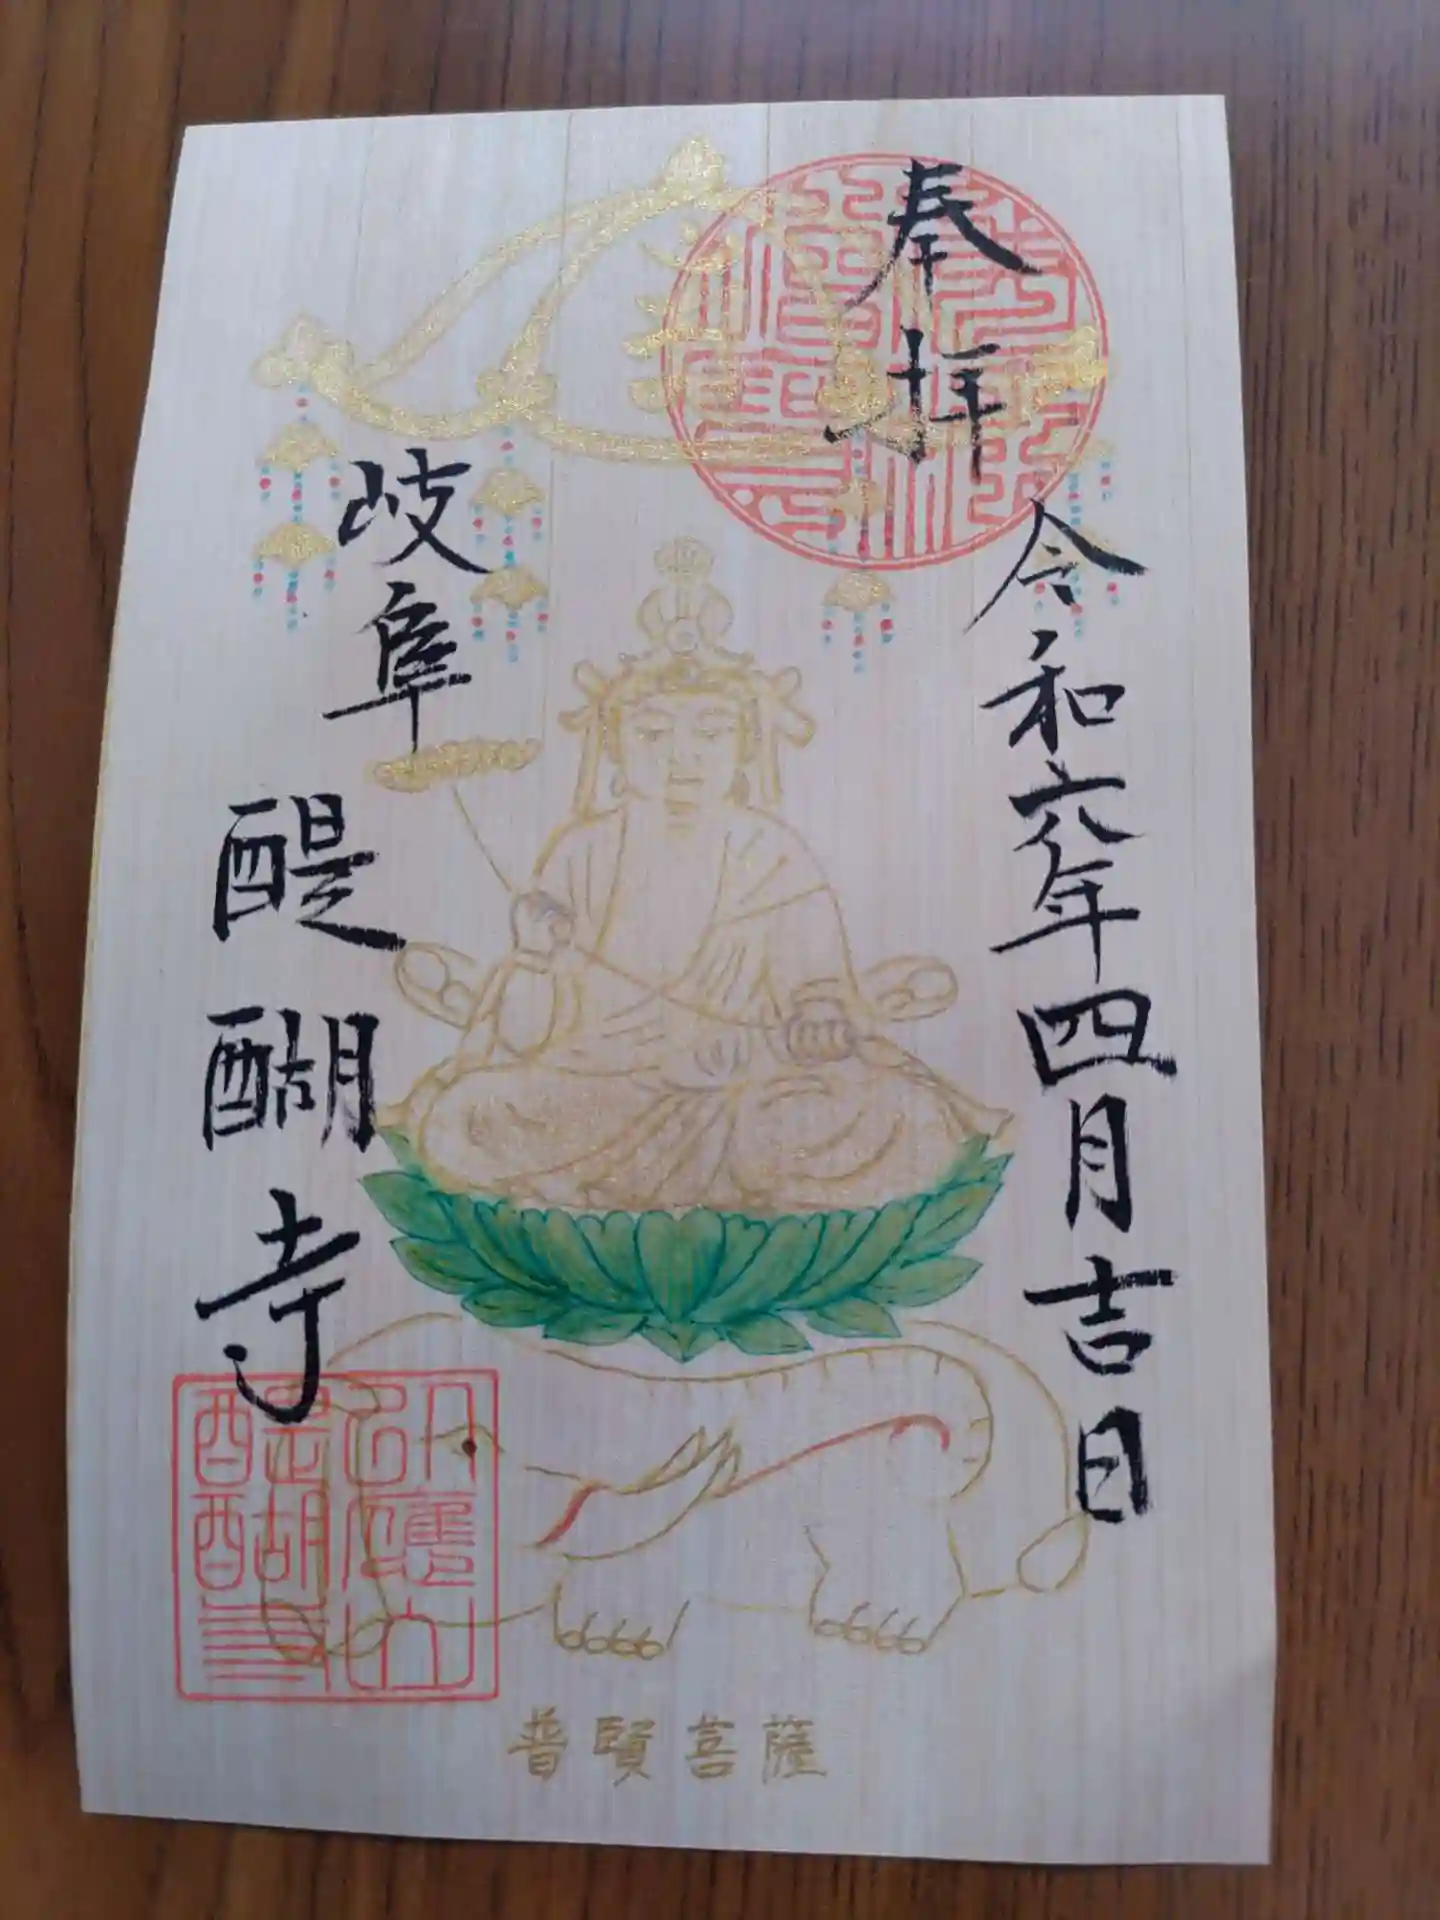 奉拝
令和六年四月吉日
岐阜
醍醐寺
普賢菩薩
醍醐寺